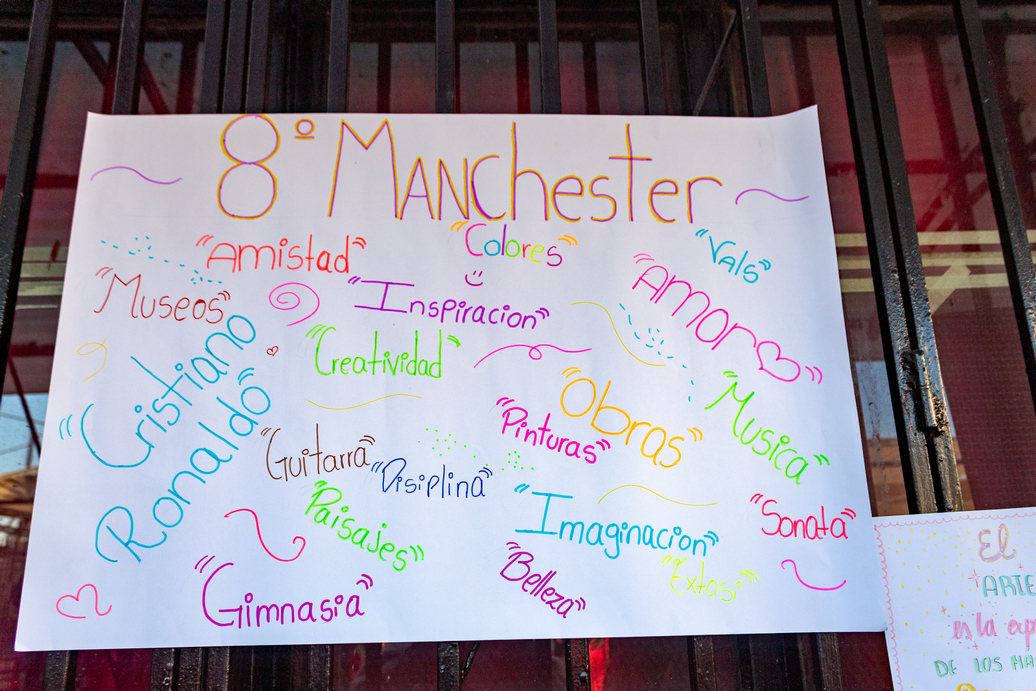 8º MANchester
"Amistad"
"Colores"
"Vals"
"Museos"
"Inspiracion"
"Amor"
"Creatividad"
"Cristiano
Ronaldo"
"Obras"
"Musica"
"Pinturas"
"Guitarra"
"Disiplina"
"Paisajes"
"Imaginacion"
"Sonata"
"Gimnasia"
"Belleza"
"Extasi"
El
ARTE
es la
DE LOS